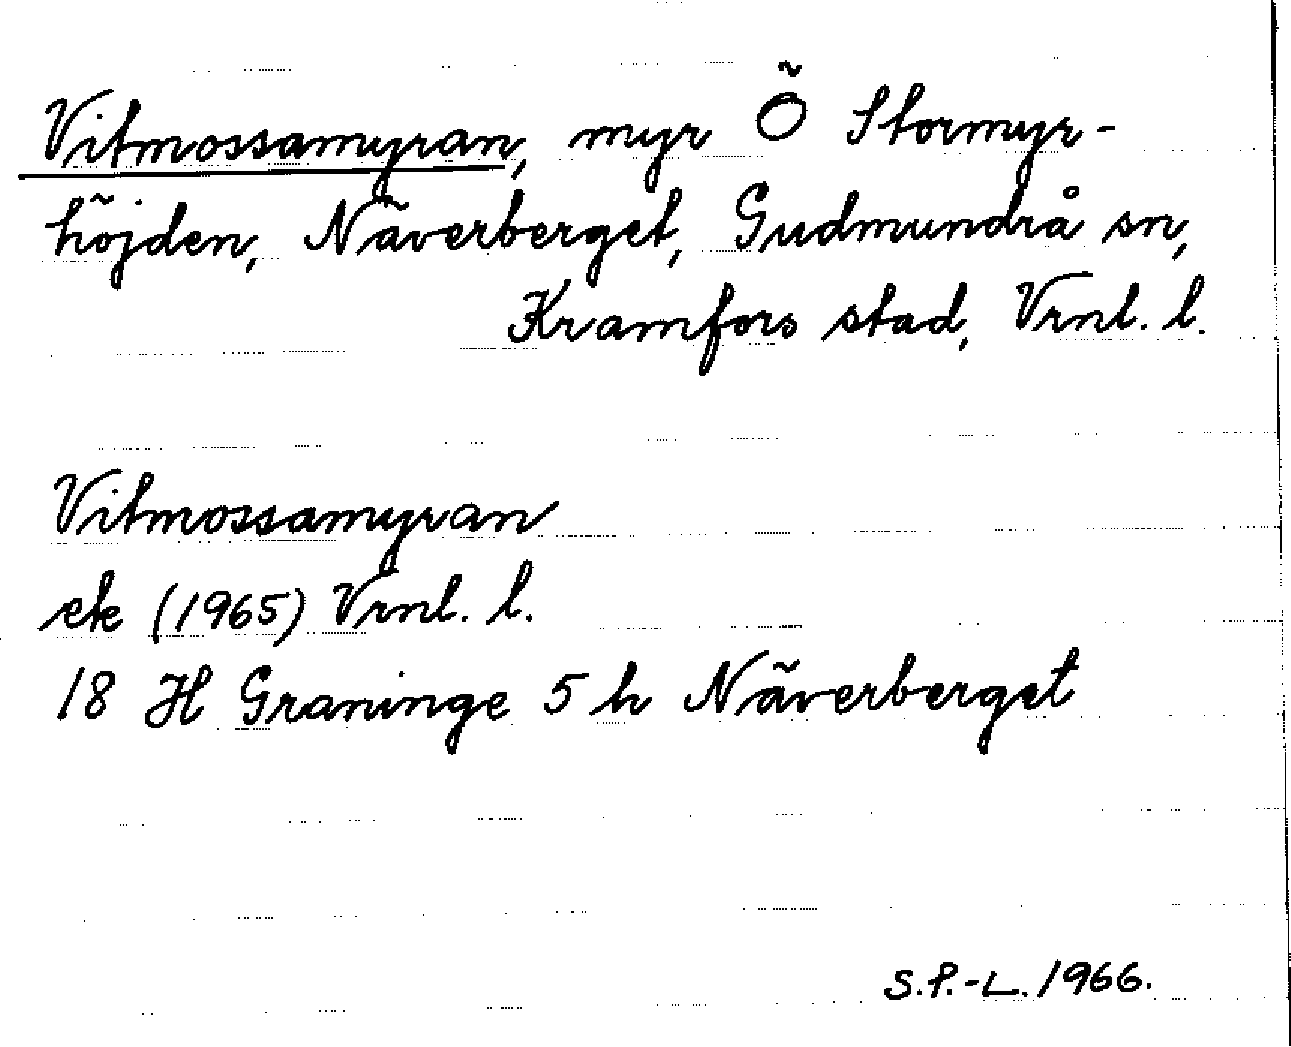 Vitmossamyran, myr Ö Stormyr-
höjden, Näverberget, Gudmundrå sn,
Kramfors stad, Vrnl. l.
Vitmossamyran
ek (1965) Vrnl. l.
18 H Graninge 5 h Näverberget
S.P.-L. 1966.